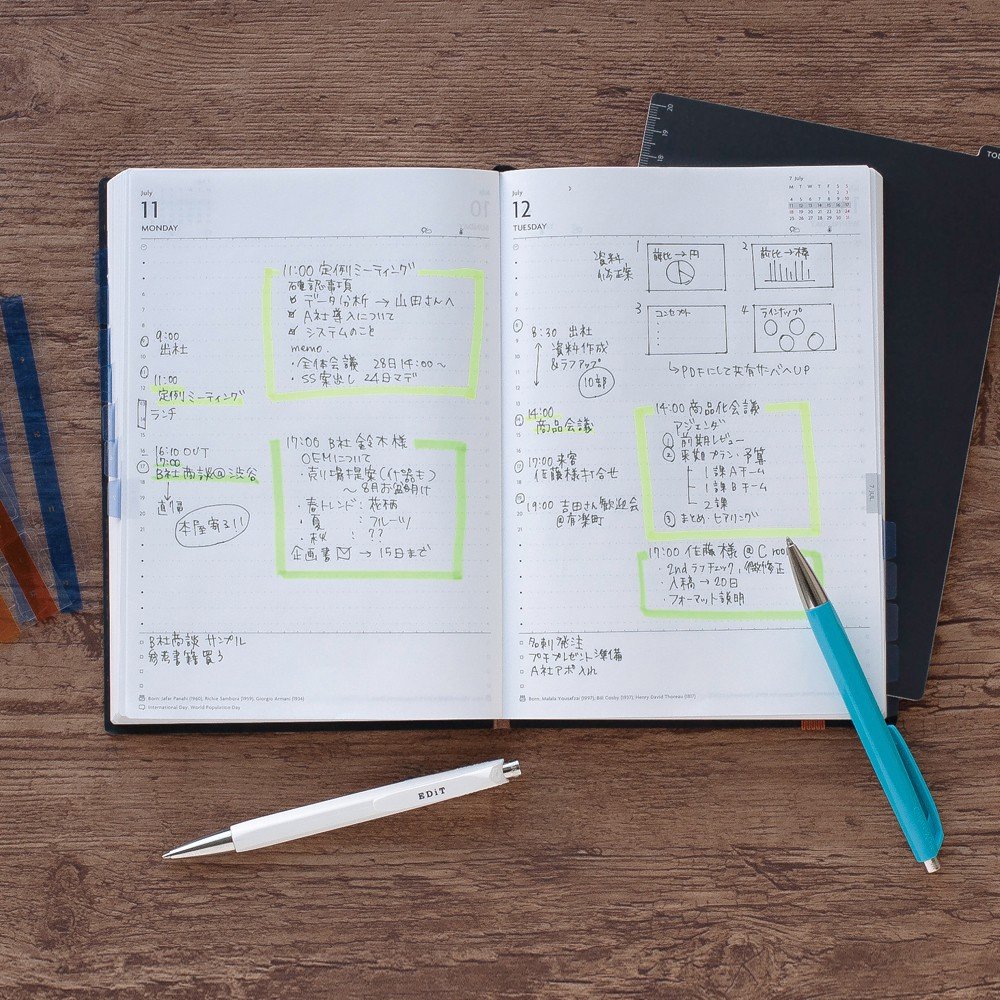 July
11
MONDAY
11:00 定例ミーティング
確認事項
データ分析 → 山田さんへ
A社導入について
システムのこと
memo
・全体会議 28日14:00〜
・SS案出し 24日マデ
9:00
出社
11:00
定例ミーティング
ランチ
16:10 OUT
17:00
B社商談@渋谷
↓
直帰
本屋寄る!!
17:00 B社 鈴木様
OEMについて
・売り場提案(什器も)
〜8月お盆明け
・春トレンド:花柄
・夏 〃 :フルーツ
・秋 〃 :??
企画書 → 15日まで
B社商談 サンプル
参考書籍買う
Born: Jafar Panahi (1960), Richie Sambora (1959), Giorgio Armani (1934)
International Day: World Population Day
July
12
TUESDAY
7 July
M T W T F S S
1 2 3
4 5 6 7 8 9 10
11 12 13 14 15 16 17
18 19 20 21 22 23 24
25 26 27 28 29 30 31
資料
修正案
1 前比→円
2 前比→棒
3 コンセプト
4 ラインナップ
↳PDFにして共有サーバへUP
8:30 出社
資料作成
&ラフアップ
10部
14:00
商品会議
17:00 来客
佐藤様打合せ
19:00 吉田さん歓迎会
@有楽町
14:00 商品化会議
アジェンダ
① 前期レビュー
② 来期プラン・予算
1課Aチーム
1課Bチーム
2課
③ まとめ・ヒアリング
17:00 佐藤様 @ C roo
・2ndラフチェック,微修正
・入稿→20日
・フォーマット説明
名刺発注
プチプレゼント準備
A社アポ入れ
Born: Malala Yousafzai (1997), Bill Cosby (1937), Henry David Thoreau (1817)
7 JUL
20
19
18
EDiT